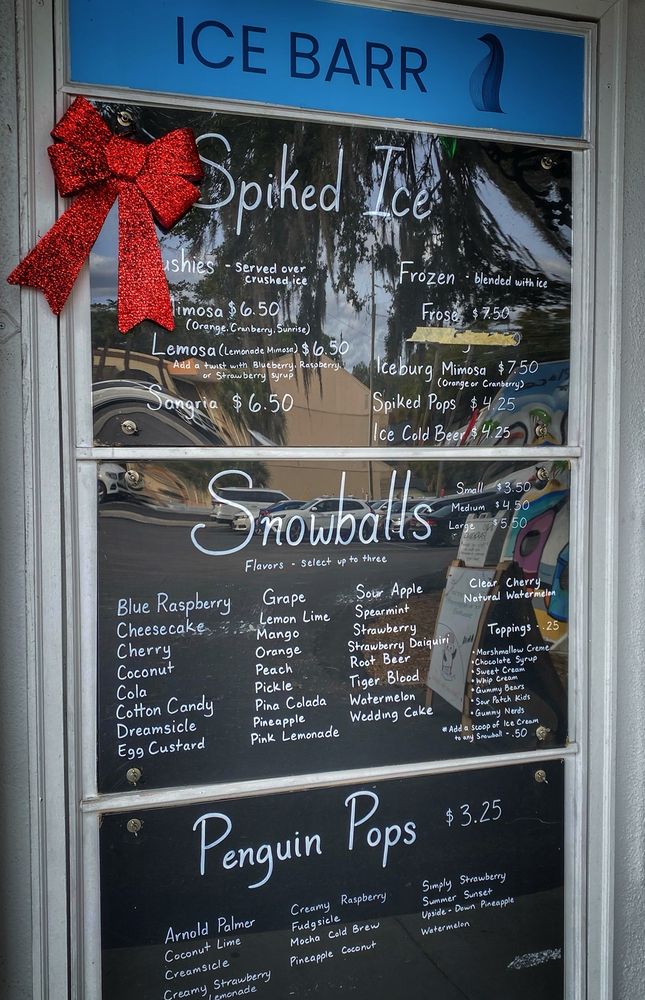 ICE BARR
Spiked Ice
ushies - served over
crushed ice
Mimosa $6.50
(Orange, Cranberry, Sunrise)
Lemosa (Lemonade Mimosa) $6.50
Add a twist with Blueberry, Raspberry,
or Strawberry syrup
Sangria $6.50
Frozen - blended with ice
Frosé $7.50
Iceburg Mimosa $7.50
(Orange or Cranberry)
Spiked Pops $4.25
Ice Cold Beer $4.25
Snowballs
Small $3.50
Medium $4.50
Large $5.50
Flavors - Select up to three
Blue Raspberry
Cheesecake
Cherry
Coconut
Cola
Cotton Candy
Dreamsicle
Egg Custard
Grape
Lemon Lime
Mango
Orange
Peach
Pickle
Pina Colada
Pineapple
Pink Lemonade
Sour Apple
Spearmint
Strawberry
Strawberry Daiquiri
Root Beer
Tiger Blood
Watermelon
Wedding Cake
Clear Cherry
Natural Watermelon
Toppings - .25
• Marshmallow Creme
• Chocolate Syrup
• Sweet Cream
• Whip Cream
• Gummy Bears
• Sour Patch Kids
• Gummy Nerds
* Add a Scoop of Ice Cream
to any Snowball - .50
Penguin Pops $3.25
Arnold Palmer
Coconut Lime
Creamsicle
Creamy Strawberry
Lemonade
Creamy Raspberry
Fudgsicle
Mocha Cold Brew
Pineapple Coconut
Simply Strawberry
Summer Sunset
Upside-Down Pineapple
Watermelon